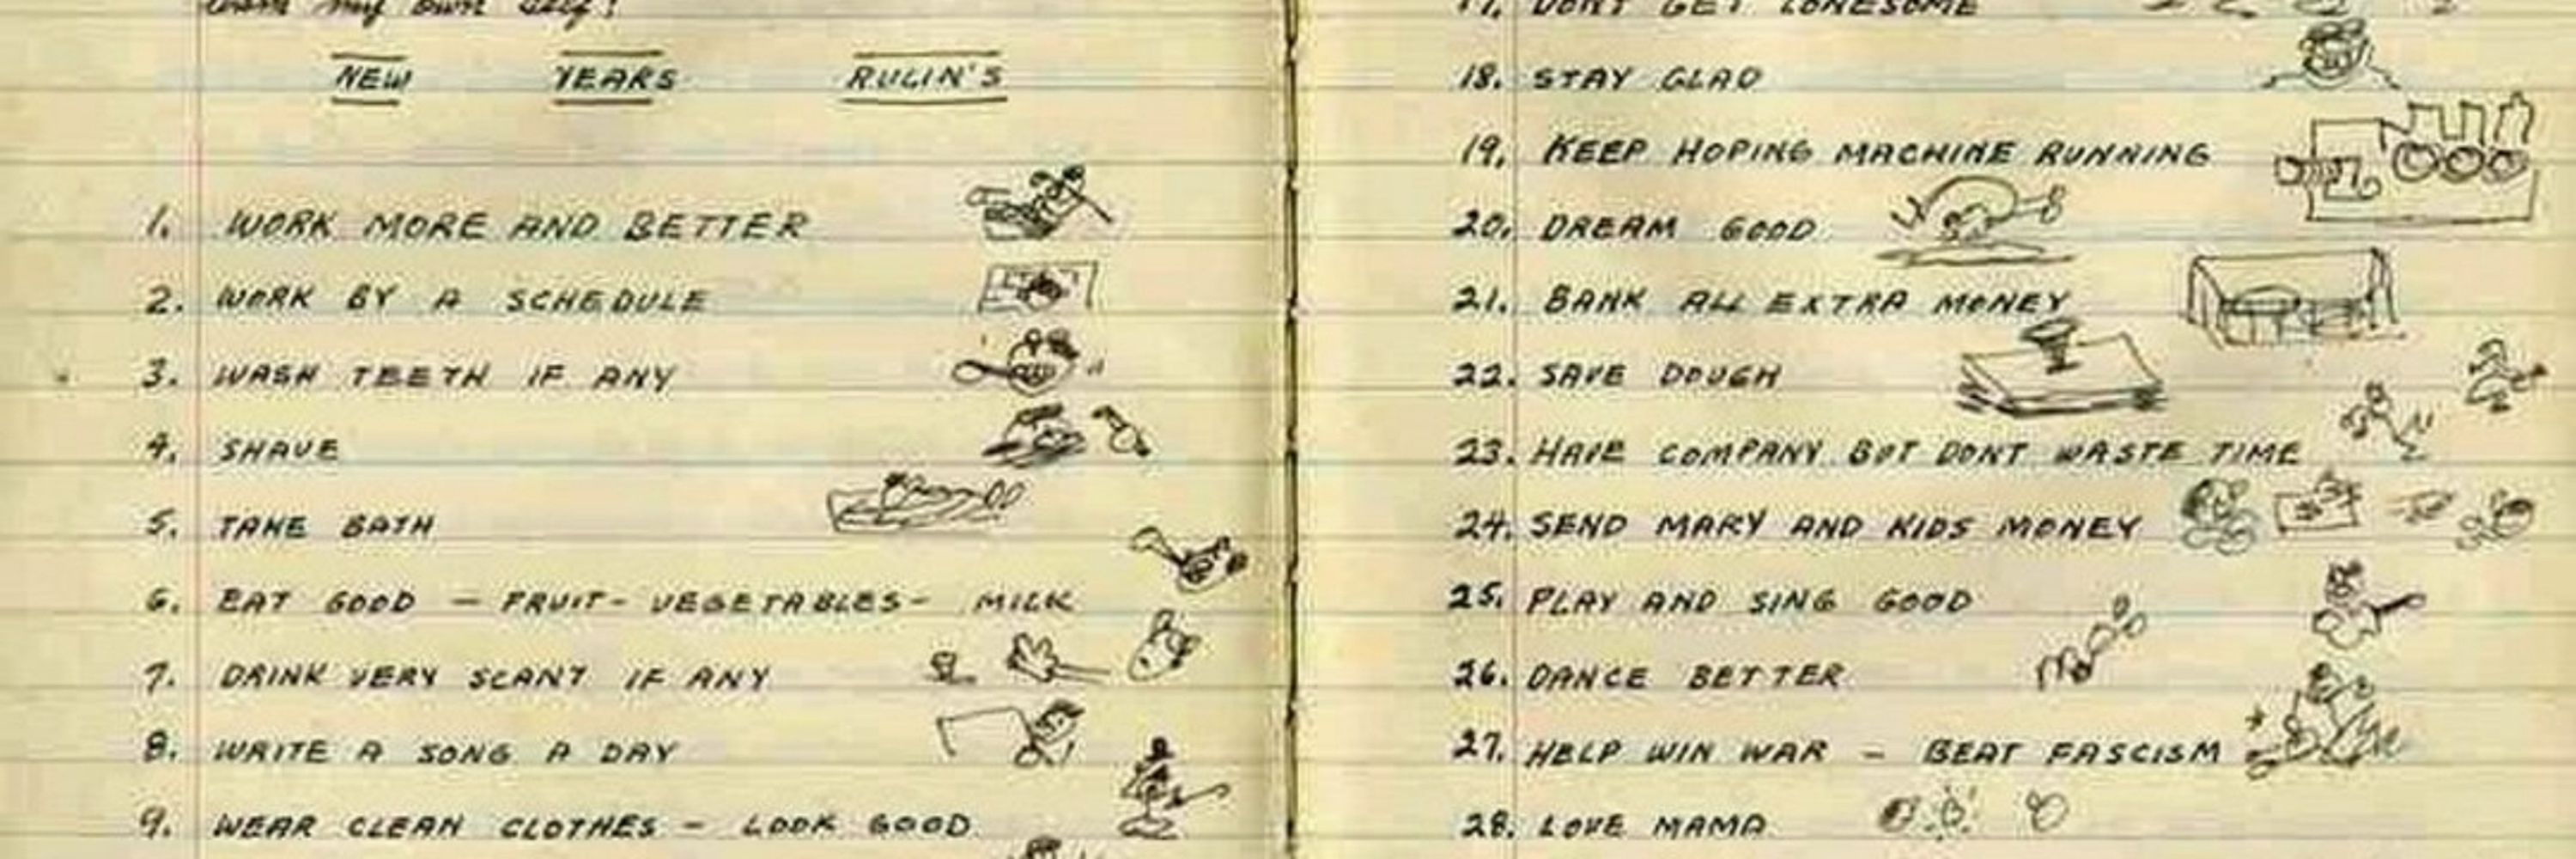 my own self!
NEW YEARS RULIN'S
1. WORK MORE AND BETTER
2. WORK BY A SCHEDULE
3. WASH TEETH IF ANY
4. SHAVE
5. TAKE BATH
6. EAT GOOD — FRUIT - VEGETABLES - MILK
7. DRINK VERY SCANT IF ANY
8. WRITE A SONG A DAY
9. WEAR CLEAN CLOTHES — LOOK GOOD
17. DONT GET LONESOME
18. STAY GLAD
19. KEEP HOPING MACHINE RUNNING
20. DREAM GOOD
21. BANK ALL EXTRA MONEY
22. SAVE DOUGH
23. HAVE COMPANY BUT DONT WASTE TIME
24. SEND MARY AND KIDS MONEY
25. PLAY AND SING GOOD
26. DANCE BETTER
27. HELP WIN WAR — BEAT FASCISM
28. LOVE MAMA